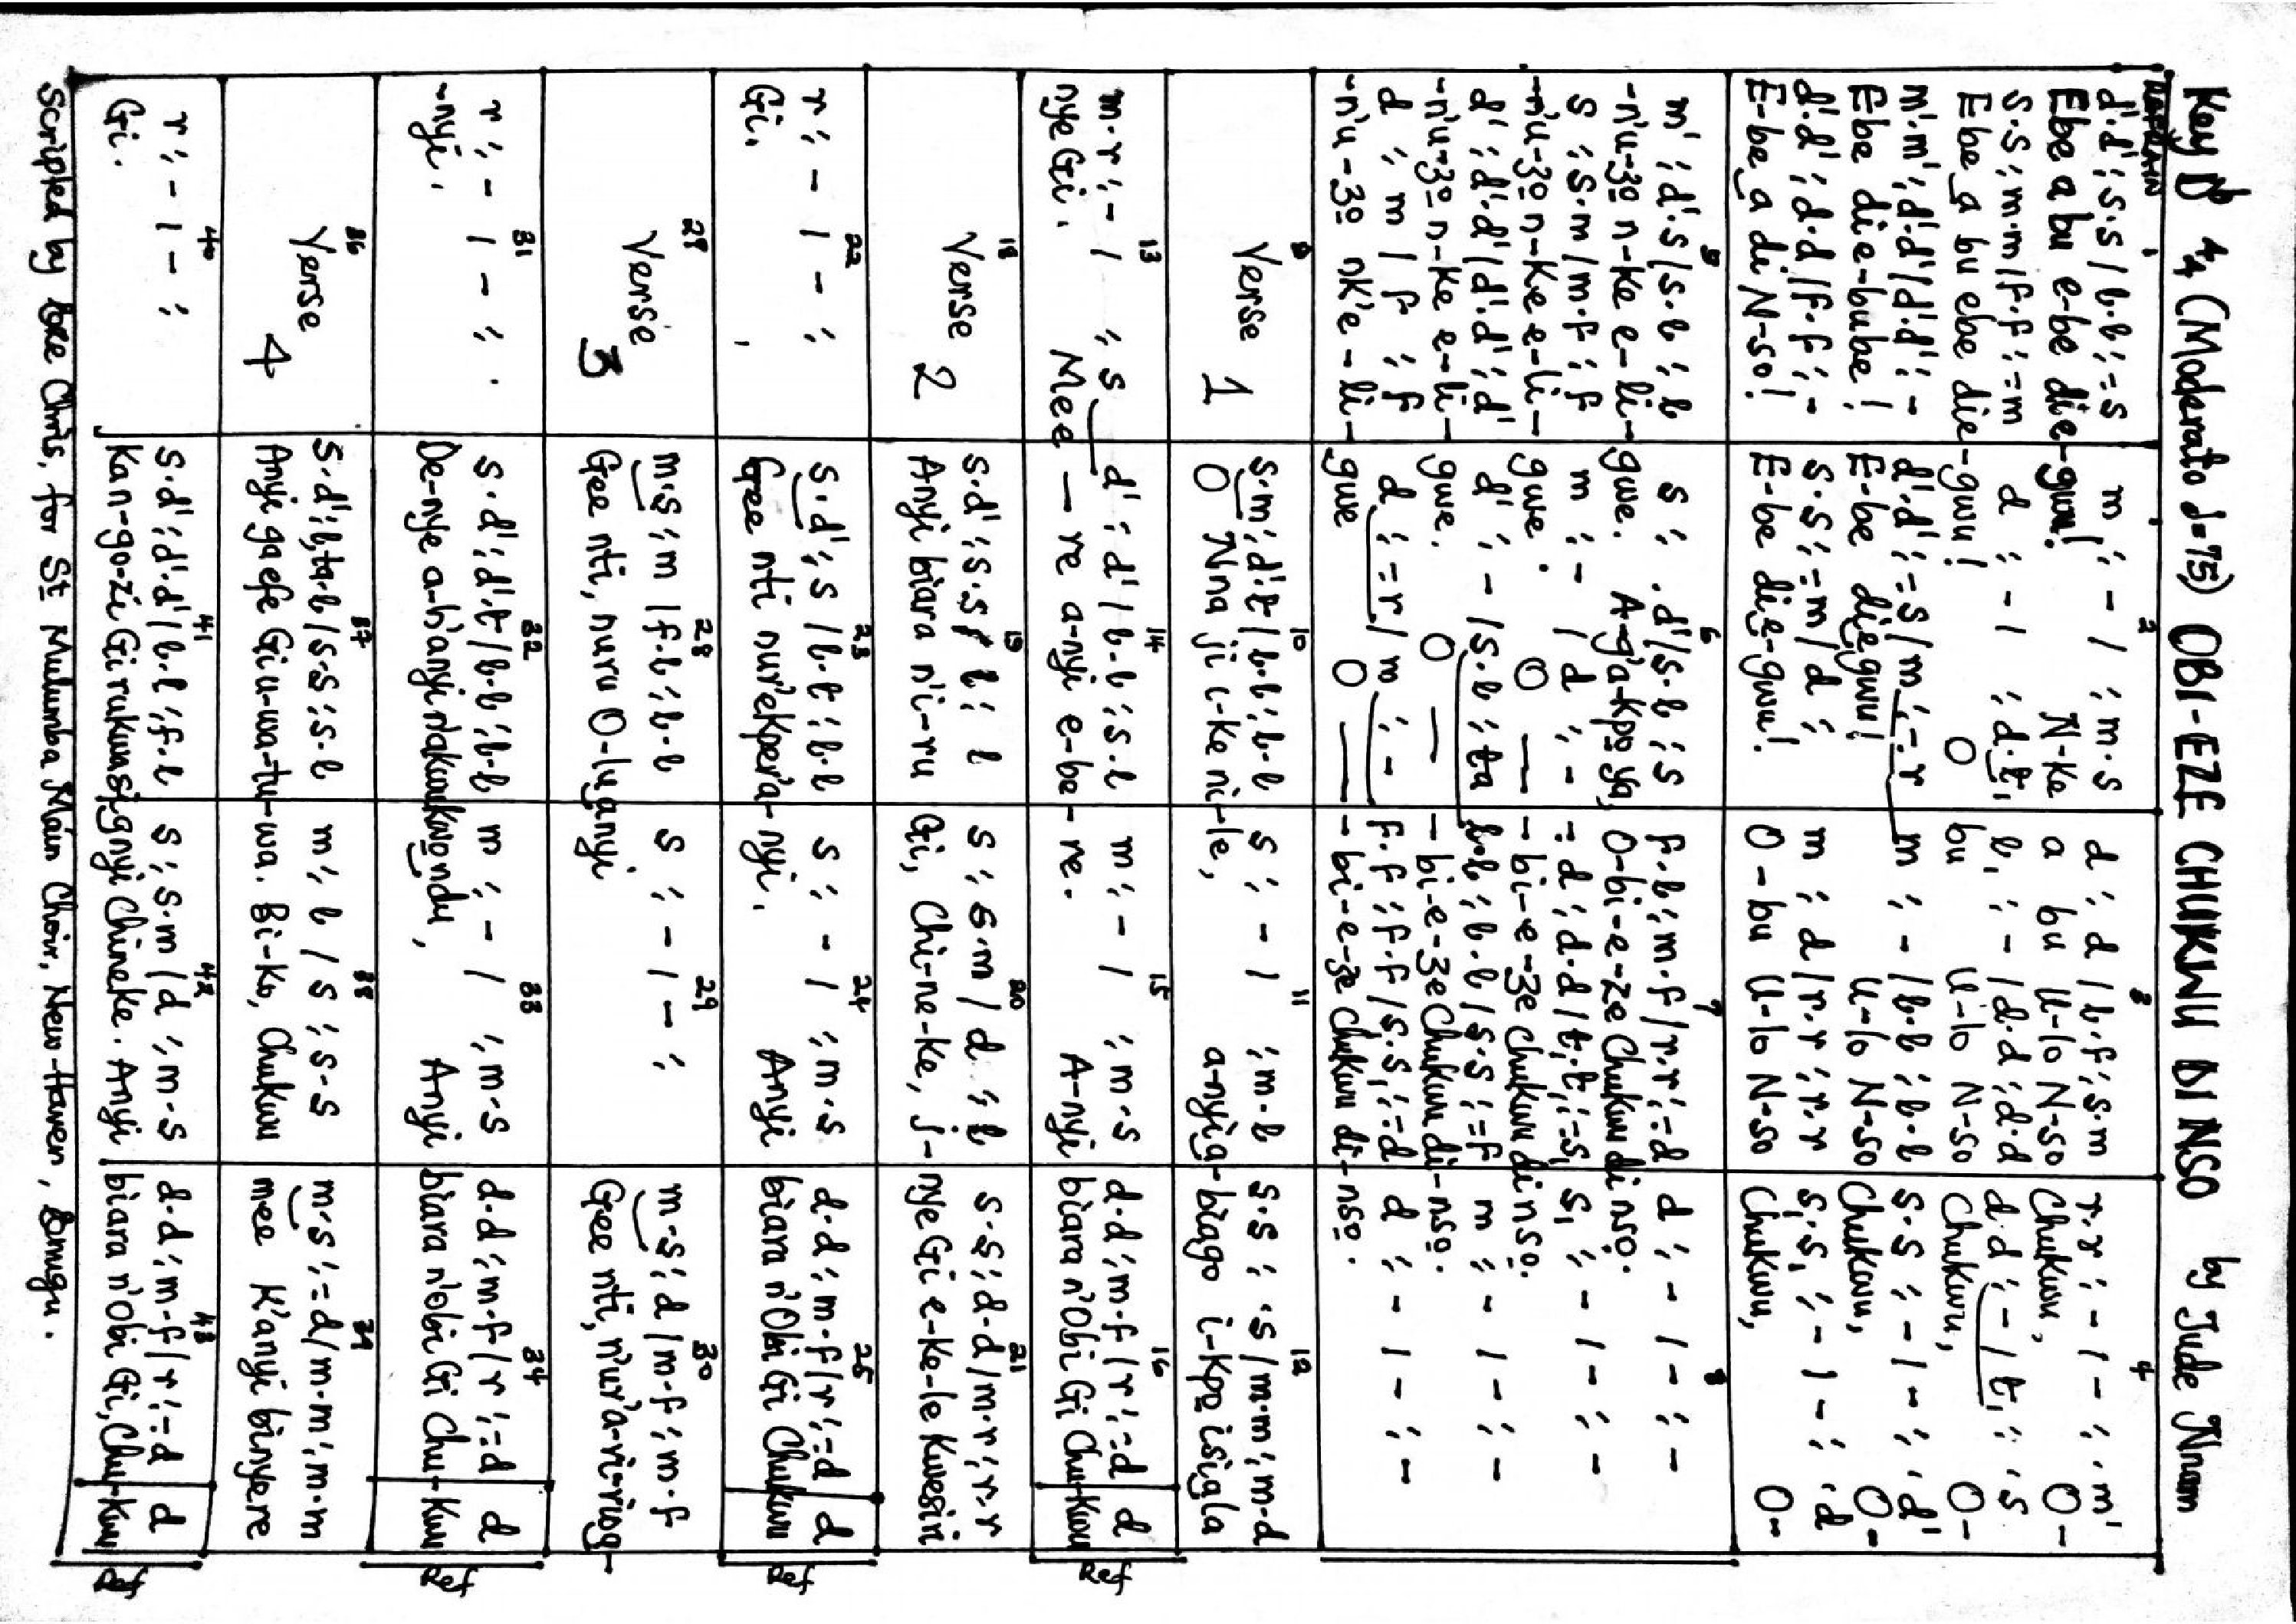 Key D 4/4 (Moderato d=75) OBI-EZE CHUKWU DI NSO by Jude Nnam
REFRAIN 1 2 3 4
d'.d' ; s.s / l.l ; =s m ; - / ; m.s d ; d / l.f ; s.m r.r ; - / - ; . m'
Ebe a bu e-be die-gwu! N-ke a bu U-lo N-so Chukwu, O-
s.s ; m.m / f.f ; =m d ; - / ; d.t, l, ; - / d.d ; d.d d.d ; - / t, ; . s
Ebe a bu ebe die-gwu! O bu U-lo N-so Chukwu, O-
m'.m' ; d'.d' / d'.d' ; - d'.d' ; =s / m ; =r m ; - / l.l ; l.l s.s ; - / - ; . d'
Ebe die-bube! E-be diegwu! U-lo N-so Chukwu, O-
d'.d' ; d.d / f.f ; - s.s ; =m / d ; m ; d / r.r ; r.r s,s, ; - / - ; . d
E-be a di N-so! E-be die-gwu! O-bu U-lo N-so Chukwu, O-
5 6 7 8
m' ; d'.s / s.l ; l s ; . d' / s.l ; s f.l ; m.f / r.r ; =d d ; - / - ; -
-n'u-zo n-ke e-li-gwe. A-g'a-kpo ya, O-bi-e-ze Chukwu di nso.
s ; s.m / m.f ; f m ; - / d ; - = d ; d.d / t,.t, ; =s, s, ; - / - ; -
-n'u-zo n-ke e-li-gwe. O — - bi-e-ze Chukwu di nso.
d' ; d'.d' / d'.d' ; d' d' ; - / s.l ; ta l.l ; l.l / s.s ; =f m ; - / - ; -
-n'u-zo n-ke e-li-gwe. O — - bi-e-ze Chukwu di-nso.
d ; m / f ; f d ; =r / m ; - f.f ; f.f / s.s, ; =d d ; - / - ; -
-n'u-zo nk'e-li-gwe O — - bi-e-ze Chukwu di-nso.
9 10 11 12
Verse 1 s.m ; d'.t / l.l ; l.l s ; - / ; m.l s.s ; . s / m.m ; m.d
O Nna ji i-ke ni-le, anyia-biago i-kpo isiala
13 14 15 16
m.r ; - / ; s d' ; d' / l.l ; s.l m ; - / ; m.s d.d ; m.f / r ; =d d
nye Gi. Mee — re a-nyi e-be-re. A-nyi biara n'Obi Gi Chu-kwu Ref
18 19 20 21
Verse 2 s.d' ; s.s / l ; l s ; s.m / d ; l s.s ; d.d / m.r ; r.r
Anyi biara n'i-ru Gi, Chi-ne-ke, i-nye Gi e-ke-le kwesiri
22 23 24 25
r ; - / - ; s.d' ; s / l.t ; l.l s ; - / ; m.s d.d ; m.f / r ; =d d
Gi. Gee nti nur'ekper'a-nyi. Anyi biara n'Obi Gi Chukwu Ref
28 29 30
Verse 3 m.s ; m / f.l ; l.l s ; - / - ; m.s ; d / m.f ; m.f
Gee nti, nuru O-lu anyi Gee nti, n'ur'a-ri-rioa-
31 32 33 34
r ; - / - ; . s.d' ; d'.t / l.l ; l.l m ; - / ; m.s d.d ; m.f / r ; =d d
-nyi. De-nye a-h'anyi Anyi biara n'obi Gi Chu-kwu Ref
36 37 38 39
Verse 4 s.d' ; l,ta.l / s.s ; s.l m ; l / s ; s.s m.s ; =d / m.m ; m.m
Anyi ga efe Gi u-wa-tu-wa. Bi-ko, Chukwu mee k'anyi binyere
40 41 42 43
r ; - / - ; s.d' ; d'.d' / l.l ; f.l s ; s.m / d ; m.s d.d ; m.f / r ; =d d
Gi. Kan-go-zi Gi Chineke. Anyi biara n'Obi Gi, Chu-kwu Ref
Scripted by Bee Chris, for St Mulumba Main Choir, New-Haven, Enugu.